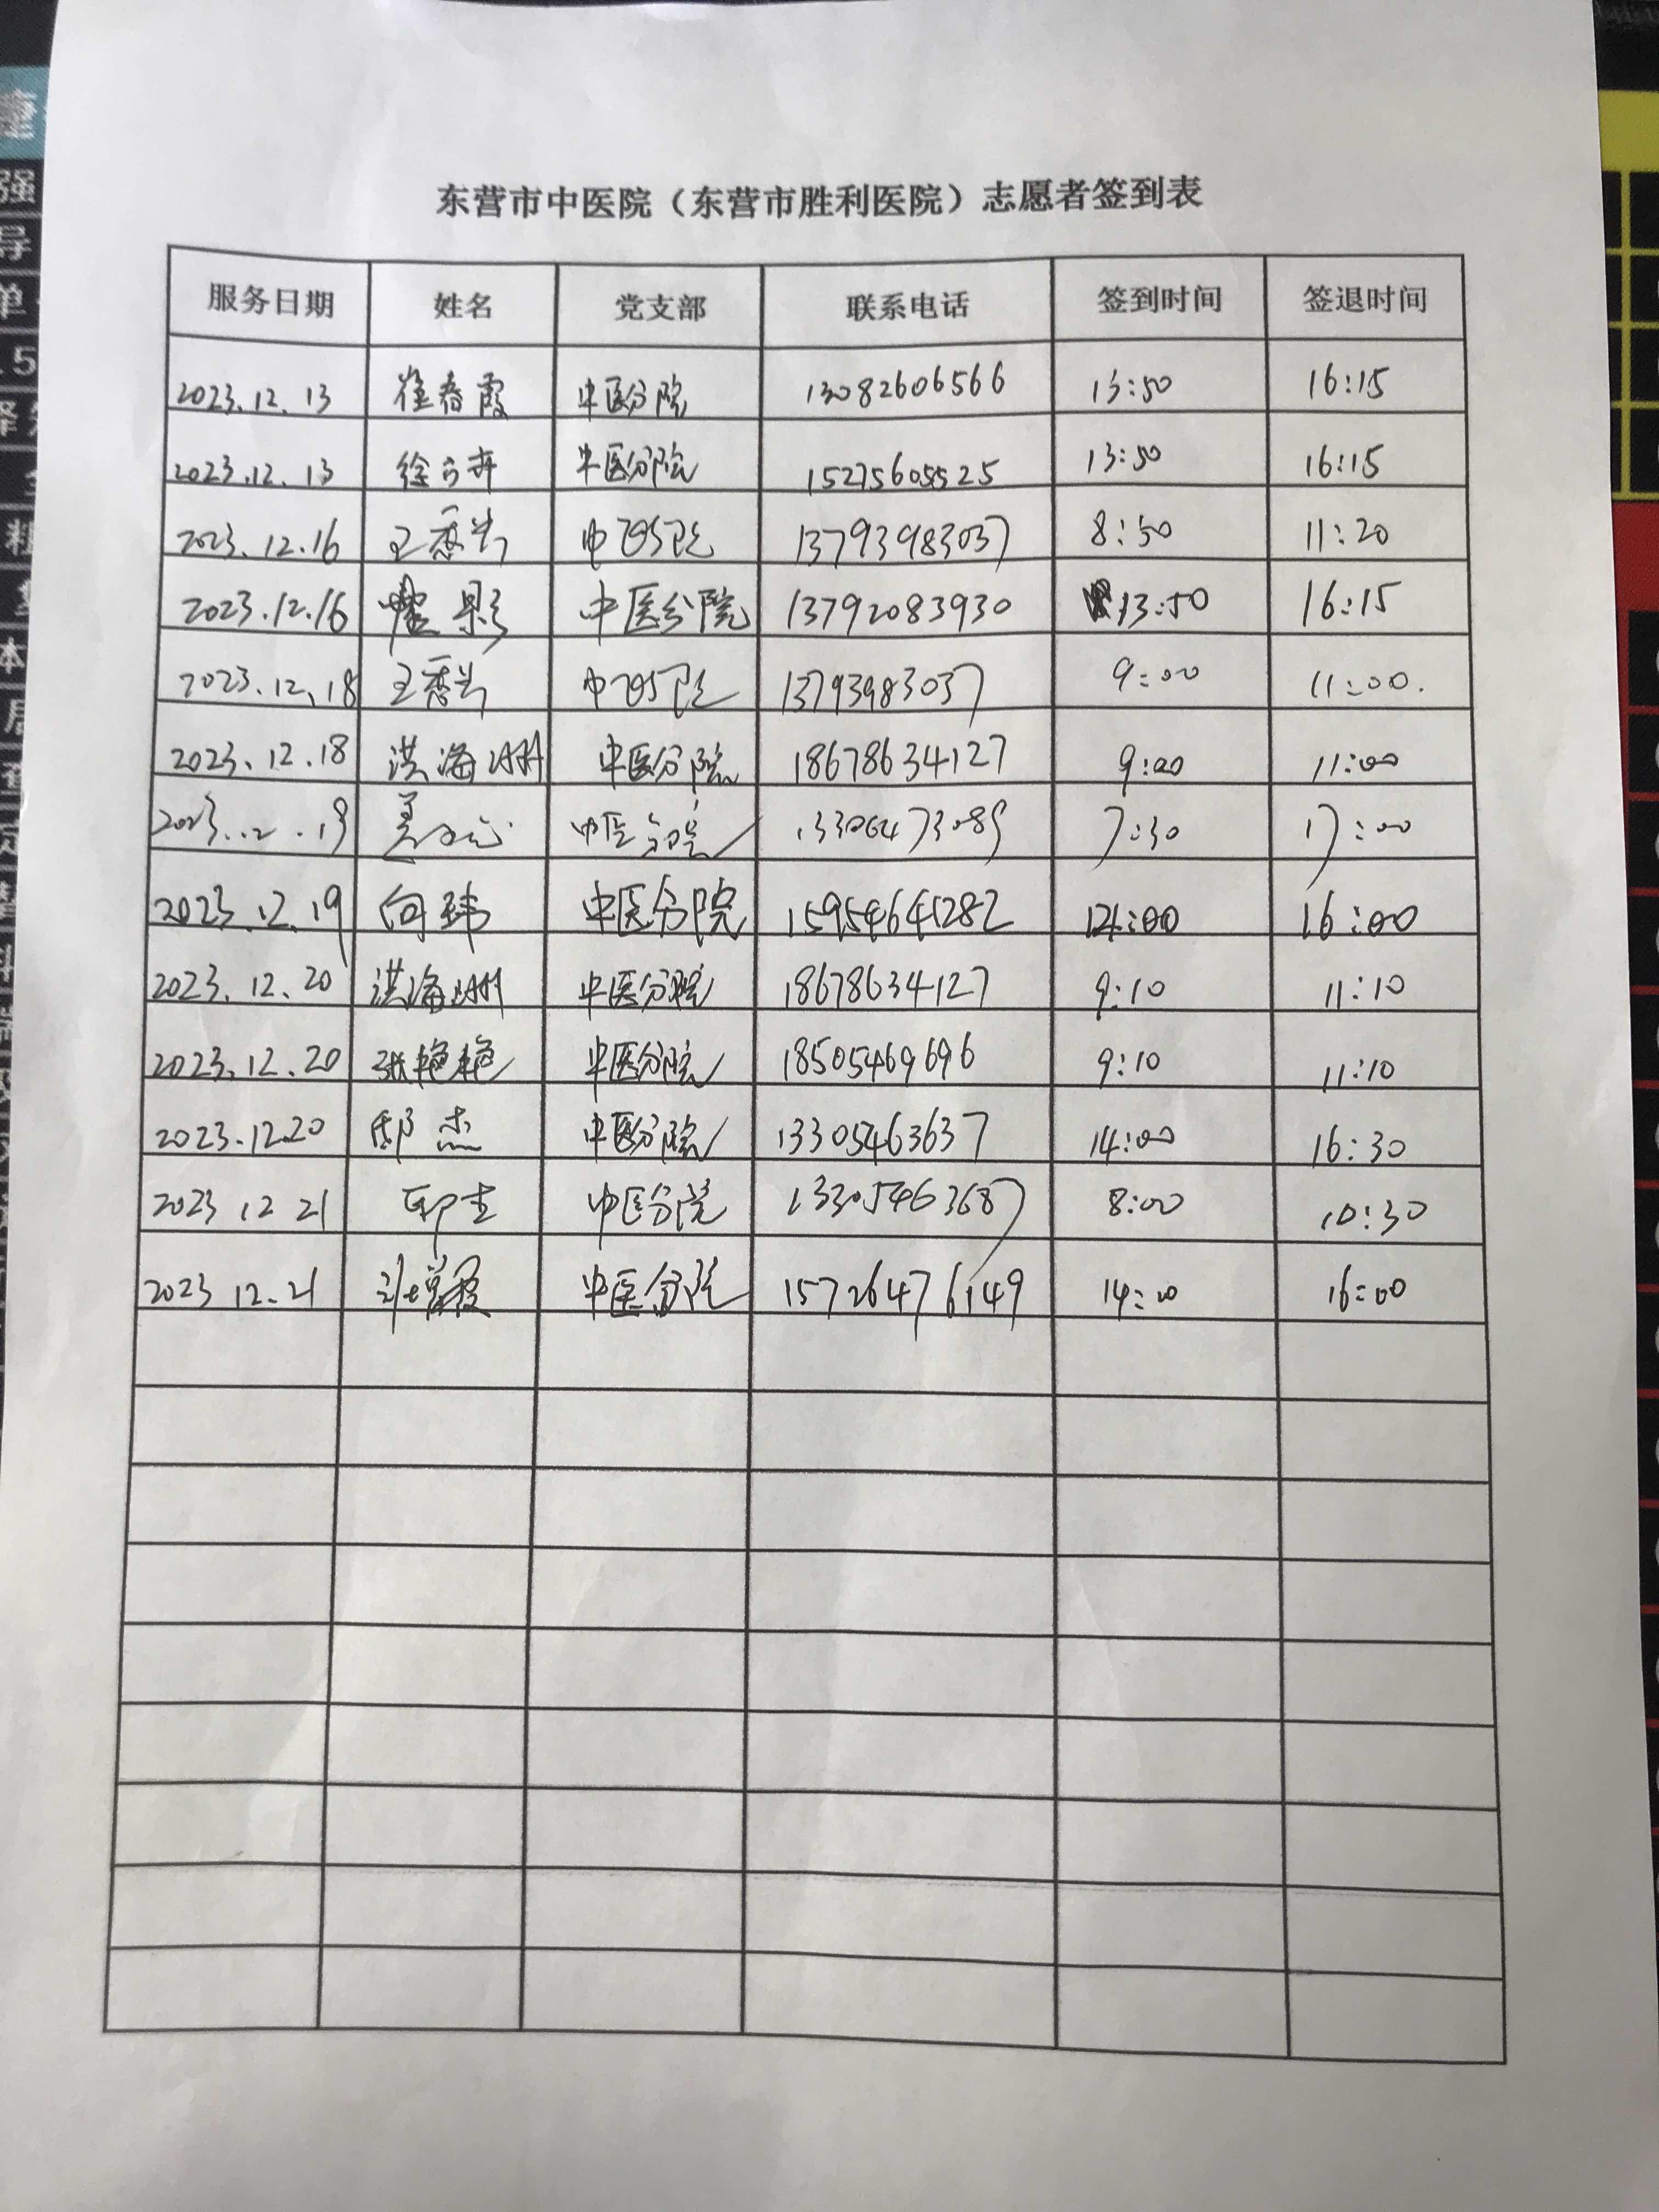 东营市中医院（东营市胜利医院）志愿者签到表
服务日期 姓名 党支部 联系电话 签到时间 签退时间
2023.12.13 崔春霞 中医分院 13082606566 13:50 16:15
2023.12.13 徐 中医分院 15275605525 13:50 16:15
2023.12.16 王秀兰 中医分院 13793983037 8:50 11:20
2023.12.16 中医分院 13792083930 13:50 16:15
2023.12.18 王秀兰 中医分院 13793983037 9:00 11:00.
2023.12.18 洪海 中医分院 18678634127 9:00 11:00
2023.12.19 中医分院 7:30 17:00
2023.12.19 向玮 中医分院 15954641282 16:00
2023.12.20 洪海 中医分院 18678634127 9:10 11:10
2023.12.20 张艳艳 中医分院 18505469696 9:10 11:10
2023.12.20 邵杰 中医分院 13305463637 14:00 16:30
2023 12 21 中医分院 13305463687 8:00 10:30
2023 12.21 中医分院 15726476149 14:00 16:00